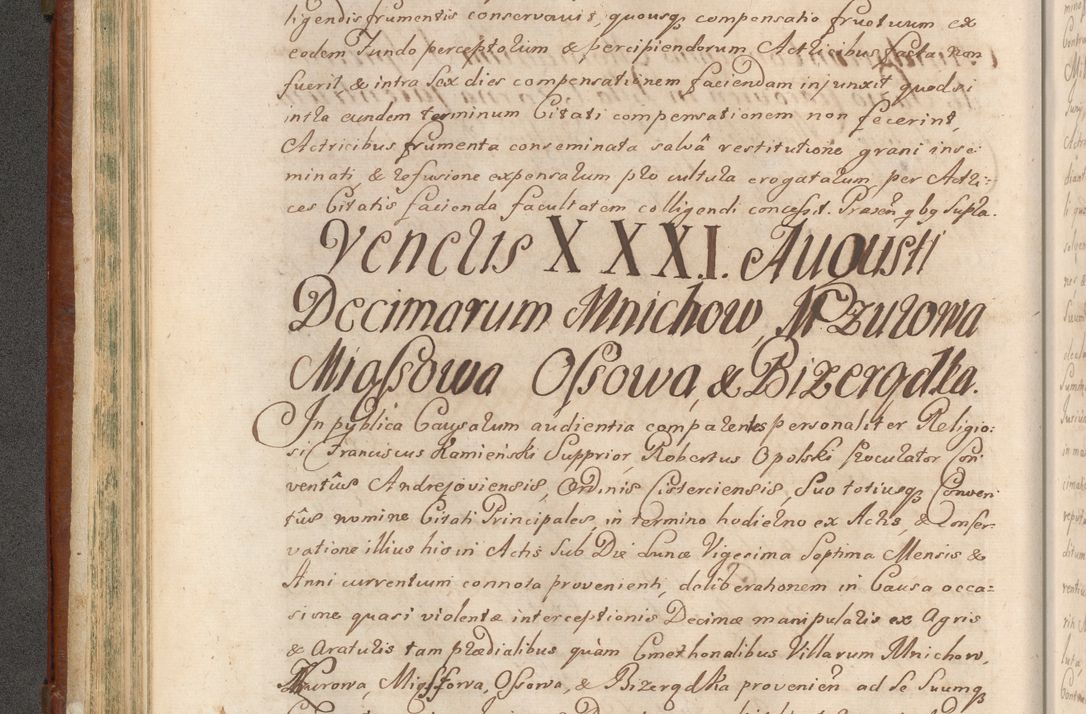 ligendis frumentis conservavit, quousq compensatio fructuum ex
eodem Fundo perceptorum & percipiendorum Actricibus facta non
fuerit, & intra sex dies compensationem faciendam injunxit, quodsi
intra eundem terminum Citati compensationem non fecerint,
Actricibus frumenta conseminata salvâ restitutione grani inse
minati, & refusione expensarum pro cultura erogatarum per Actri=
ces Citatis facienda facultatem colligendi concessit. Præsen̄ q bg supra.
Veneris XXXI. Augusti
Decimarum Mnichow, Krzurowa
Miąssowa Ossowa, & Bizerądka.
In publica Causarum audientia comparentes personaliter Religio:
si Franciscus Kamieński Supprior, Robertus Opolski Procurator Con
ventûs Andrejoviensis, Ordinis Cisterciensis, Suo totiusq Conven
tûs nomine Citati Principales, in termino hodierno ex Actis, & Conser
vatione illius his in Actis Sub Die Lunæ Vigesima Septima Mensis &
Anni currentium connota provenienti, deliberationem in Causa occa=
sione quasi violentæ interceptionis Decimæ manipularis ex Agris
& Araturis tam prædialibus quàm Cmethonalibus Villarum Mnichow,
Miąssowa, Ossowa, & Bizerądka provenien̄ ad se Suumq